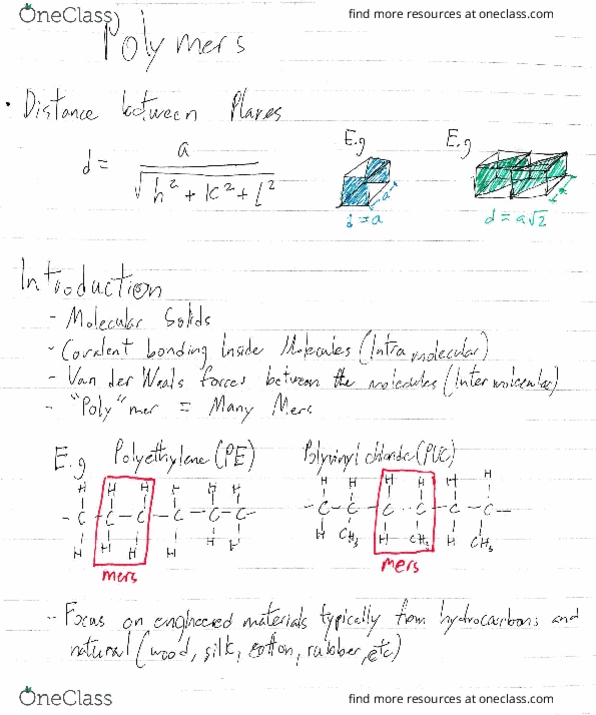 OneClass find more resources at oneclass.com
Polymers
• Distance between Planes
d = a / √h² + k² + l²
E.g
d = a
E.g
d = a√2
Introduction
- Molecular Solids
- Covalent bonding inside Molecules (Intra molecular)
- Van der Waals forces between the molecules (Inter molecular)
- "Poly" mer = Many Mers
E.g Polyethylene (PE) Polyvinyl chloride (PVC)
H H H H H H H H H H H H
- C - C - C - C - C - C - - C - C - C - C - C - C -
H H H H H H H CH₃ H CH₃ H CH₃
mers mers
- Focus on engineered materials typically from hydrocarbons and
natural (wood, silk, cotton, rubber, etc)
OneClass find more resources at oneclass.com